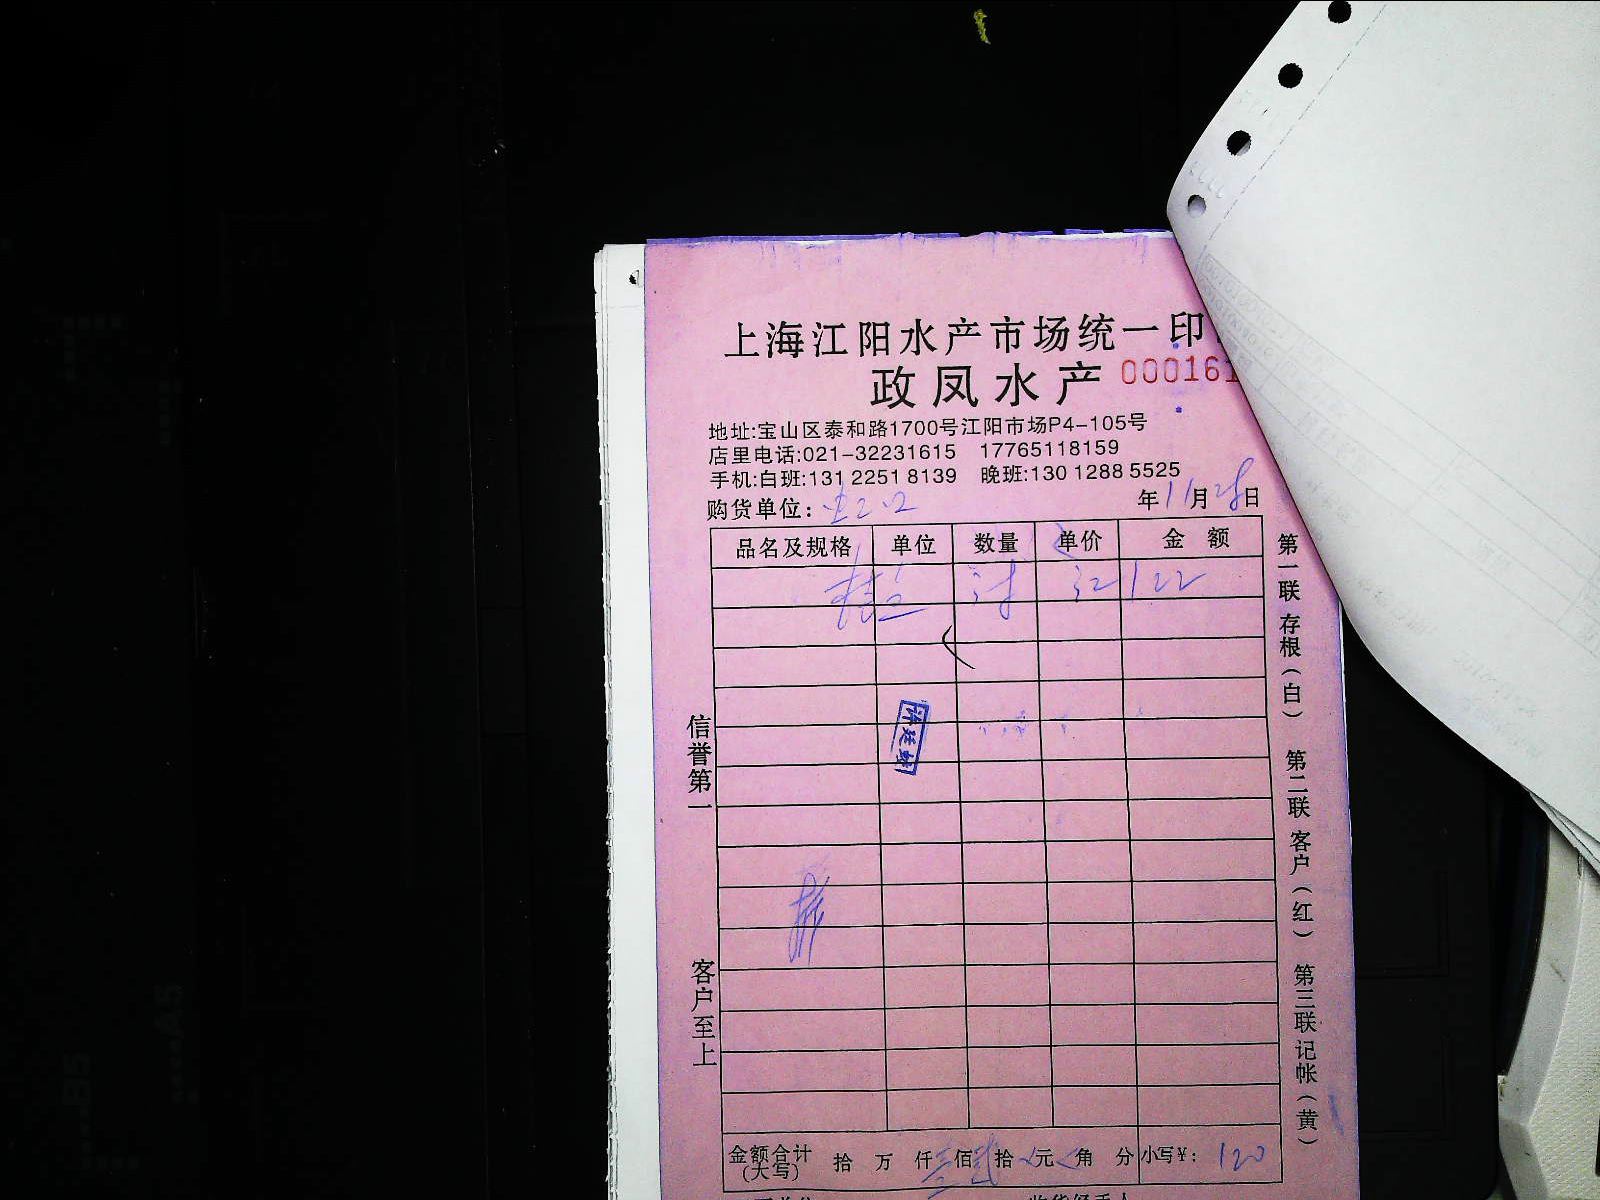 上海江阳水产市场统一印
政凤水产 000161
地址:宝山区泰和路1700号江阳市场P4-105号
店里电话:021-32231615 17765118159
手机:白班:131 2251 8139 晚班:130 1288 5525
购货单位: 年11月28日
品名及规格 单位 数量 单价 金额
信誉第一
客户至上
第一联 存根(白) 第二联 客户(红) 第三联 记帐(黄)
金额合计(大写) 拾 万 仟 佰 拾 元 角 分 小写¥: 120